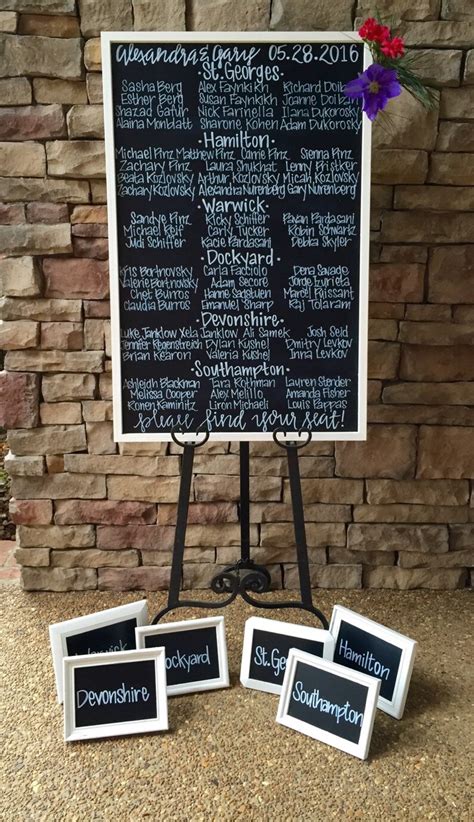 Alexandra & Gary 05.28.2016
·St. Georges·
Sasha Berg Alex Faynkikh Richard Dolban
Esther Berg Susan Faynkikh Joanne Dolban
Shazad Gafur Nick Farinella Ilana Dukorosky
Alaina Mondatt Sharone Kohen Adam Dukorosky
·Hamilton·
Michael Pinz Matthew Pinz Carrie Pinz Sienna Pinz
Zachary Pinz Laura Shukhat Lenny Pristker
Beata Kozlovsky Arthur Kozlovsky Micah Kozlovsky
Zachary Kozlovsky Alexandra Nurenberg Gary Nurenberg
·Warwick·
Sandye Pinz Ricky Schiffer Pavan Pardasani
Michael Reif Carly Tucker Robin Schwartz
Judi Schiffer Kacie Pardasani Debba Skyler
·Dockyard·
Kris Bortnovsky Carla Facciolo Dena Savage
Valerie Bortnovsky Adam Secore Jorde Izurieta
Chet Burros Hanne Sadstuen Marcel Puissant
Claudia Burros Emanuel Sharp Raj Tolaram
·Devonshire·
Luke Janklow Xela Janklow Ali Samek Josh Seid
Jennifer Roemstrich Dylan Kushel Dmitry Levkov
Brian Kearon Valeria Kushel Inna Levkov
·Southampton·
Ashleigh Blackman Tara Rothman Lauren Stender
Melissa Cooper Alex Melillo Amanda Fisher
Ronen Kaminitz Liron Michaeli Louis Pappas
please find your seat!
Warwick
Dockyard
St. Georges
Hamilton
Devonshire
Southampton